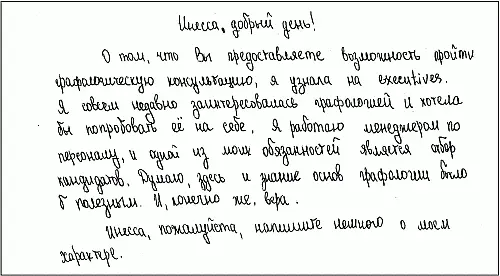 Инесса, добрый день!
О том, что Вы предоставляете возможность пройти
графологическую консультацию, я узнала на executives.
Я совсем недавно заинтересовалась графологией и хотела
бы попробовать её на себе. Я работаю менеджером по
персоналу, и одной из моих обязанностей является отбор
кандидатов. Думаю, здесь и знание основ графологии было
б полезным. И, конечно же, вера.
Инесса, пожалуйста, напишите немного о моем
характере.